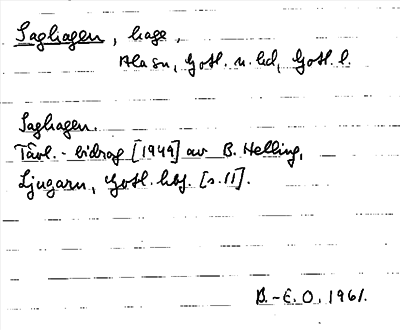 Saghagen, hage,
Ala sn, Gotl. n. hd, Gotl. l.
Saghagen.
Tävl.-bidrag [1949] av B. Helling,
Ljugarn, Gotl. hbf. [s. 11].
B.-E. O. 1961.